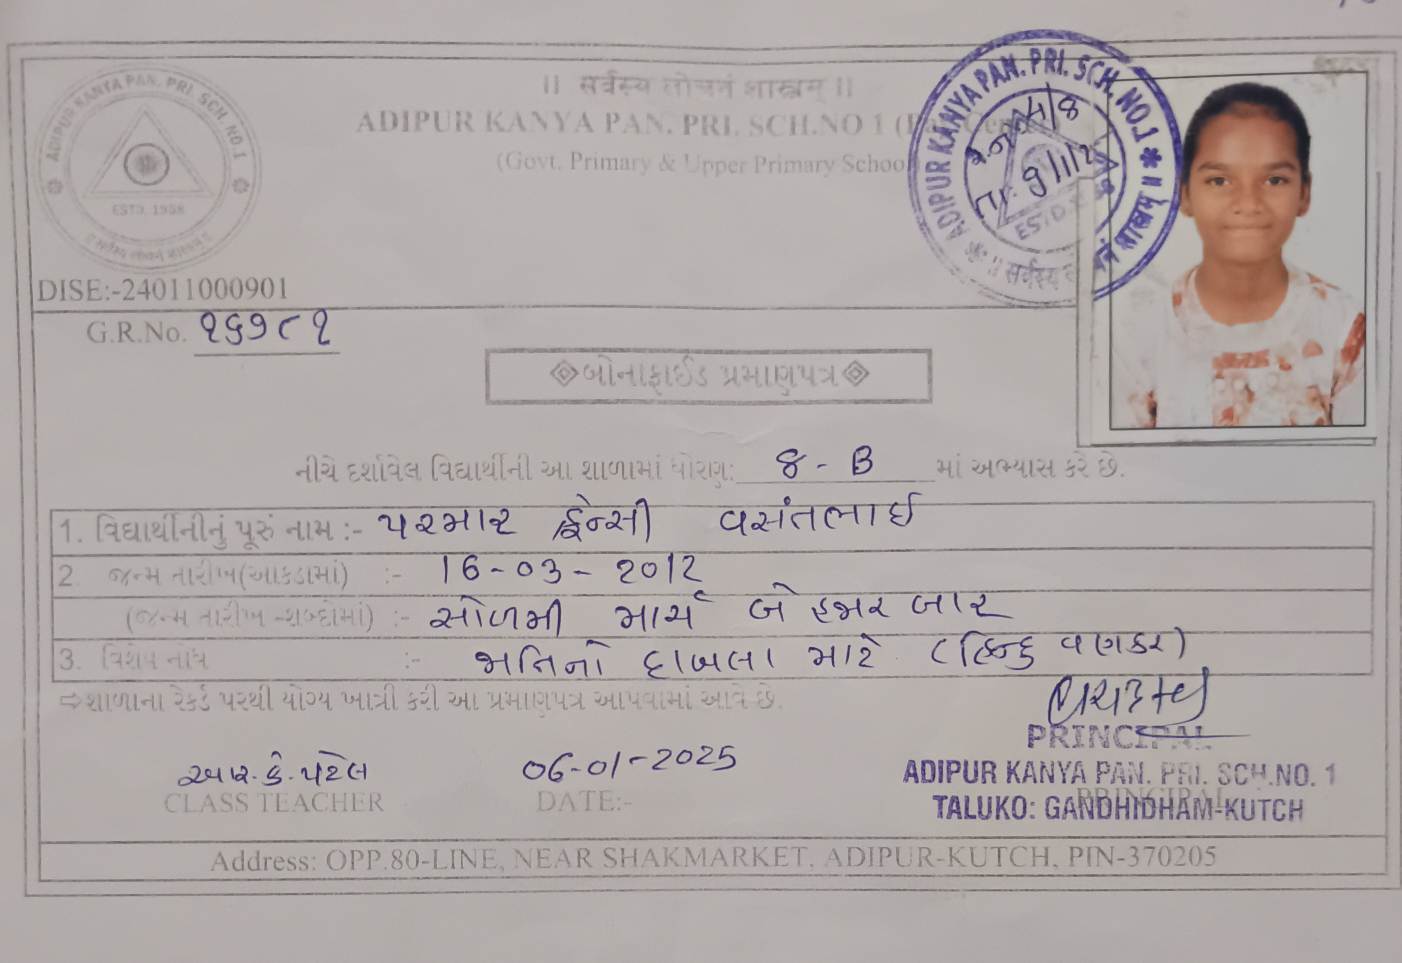 ADIPUR KANYA PAN. PRI. SCH. NO.1
ESTD. 1958
|| सर्वस्य लोचनं शास्त्रम् ||
ADIPUR KANYA PAN. PRI. SCH.NO 1
(Govt. Primary & Upper Primary School
ADIPUR KANYA PAN. PRI. SCH. NO.1
DISE:-24011000901
G.R.No. ૨૬૭૮૧
બોનાફાઈડ પ્રમાણપત્ર
નીચે દર્શાવેલ વિદ્યાર્થીની આ શાળામાં ધોરણ: 8 - B માં અભ્યાસ કરે છે.
1. વિદ્યાર્થીનીનું પૂરું નામ :- પરમાર ફેન્સી વસંતભાઈ
2. જન્મ તારીખ(આંકડામાં) :- 16-03-2012
(જન્મ તારીખ -શબ્દોમાં) :- સોળમી માર્ચ બે હજાર બાર
3. વિશેષ નોંધ :- જાતિનો દાખલા માટે (હિન્દુ વણકર)
⇨શાળાના રેકર્ડ પરથી યોગ્ય ખાત્રી કરી આ પ્રમાણપત્ર આપવામાં આવે છે.
આર. કે. પટેલ
CLASS TEACHER
06-01-2025
DATE:-
PRINCIPAL
ADIPUR KANYA PAN. PRI. SCH.NO. 1
TALUKO: GANDHIDHAM-KUTCH
PRINCIPAL
Address: OPP.80-LINE, NEAR SHAKMARKET, ADIPUR-KUTCH, PIN-370205